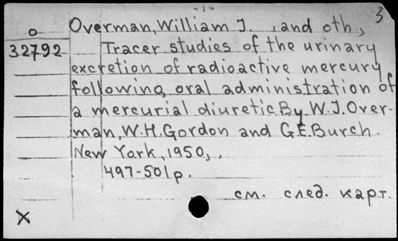 -1-
3
Overman, William J. , and oth.,
32792
Tracer studies of the urinary
excretion of radioactive mercury
following oral administration of
a mercurial diuretic. By W.J. Over-
man, W.H. Gordon and G.E. Burch.
New York, 1950, .
497-501 p.
см. след. карт.
X